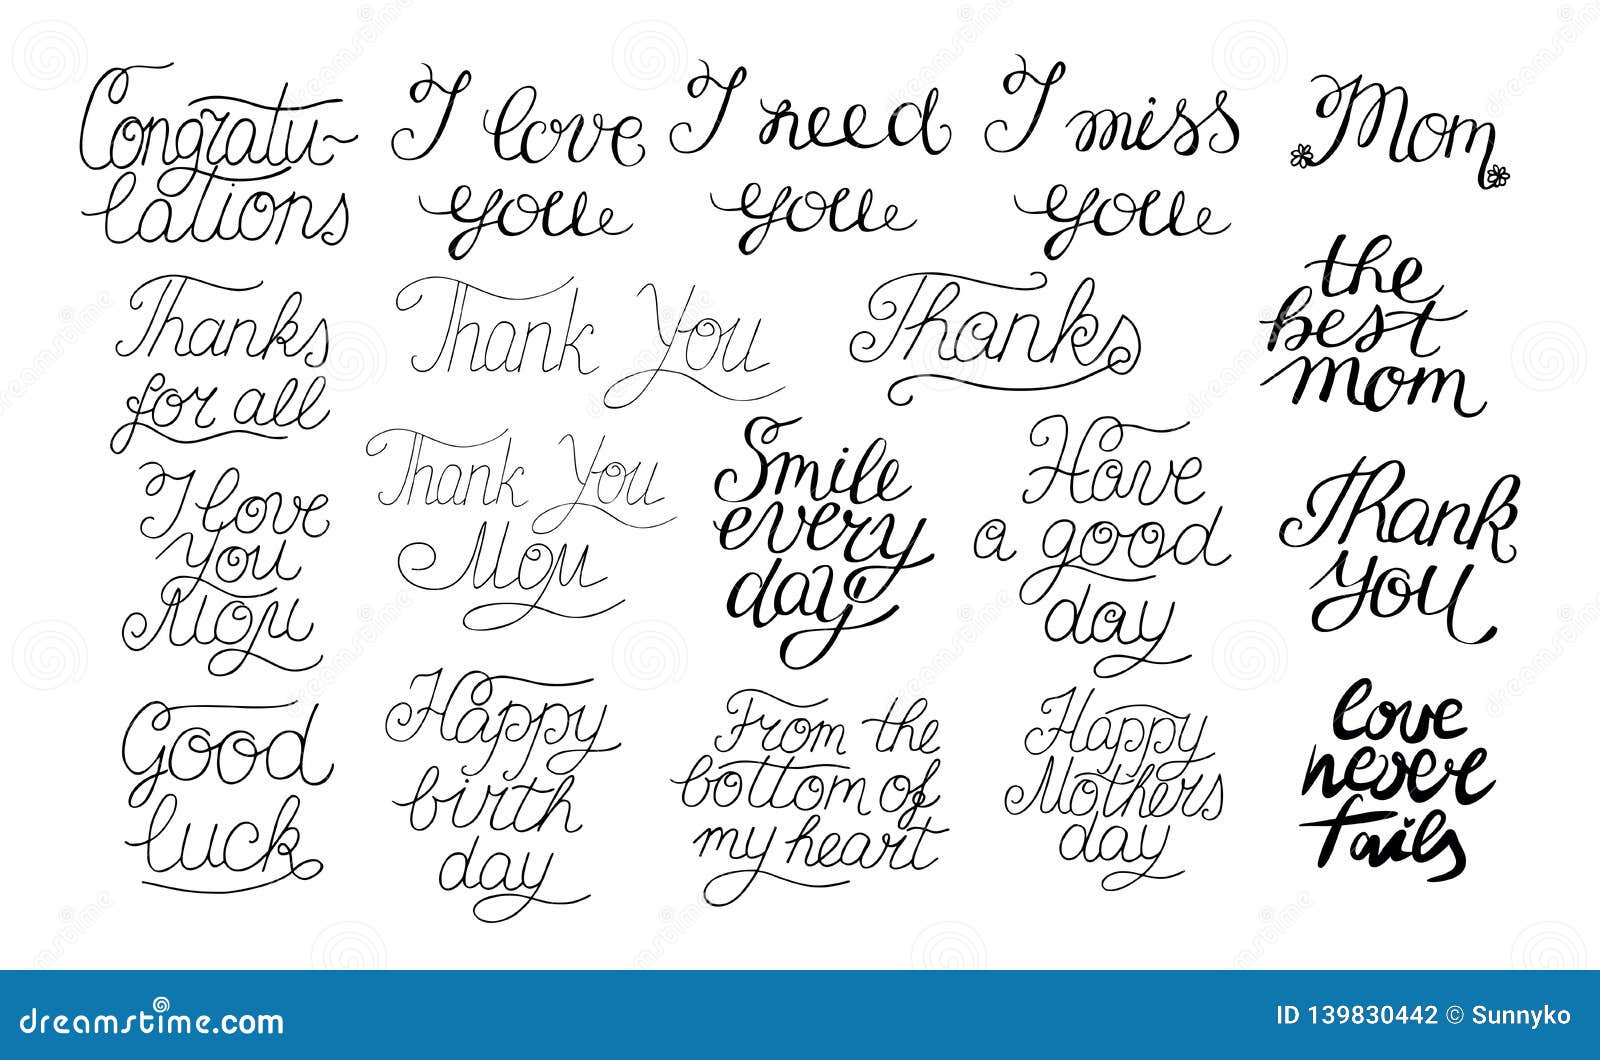 Congratu-
lations
I love
you
I need
you
I miss
you
Mom
Thanks
for all
Thank You
Thanks
the
best
mom
I love
you
Mom
Thank You
Mom
Smile
every
day
Have
a good
day
Thank
you
Good
luck
Happy
birth
day
From the
bottom of
my heart
Happy
Mothers
day
love
never
fails
dreamstime.com
ID 139830442 © Sunnyko